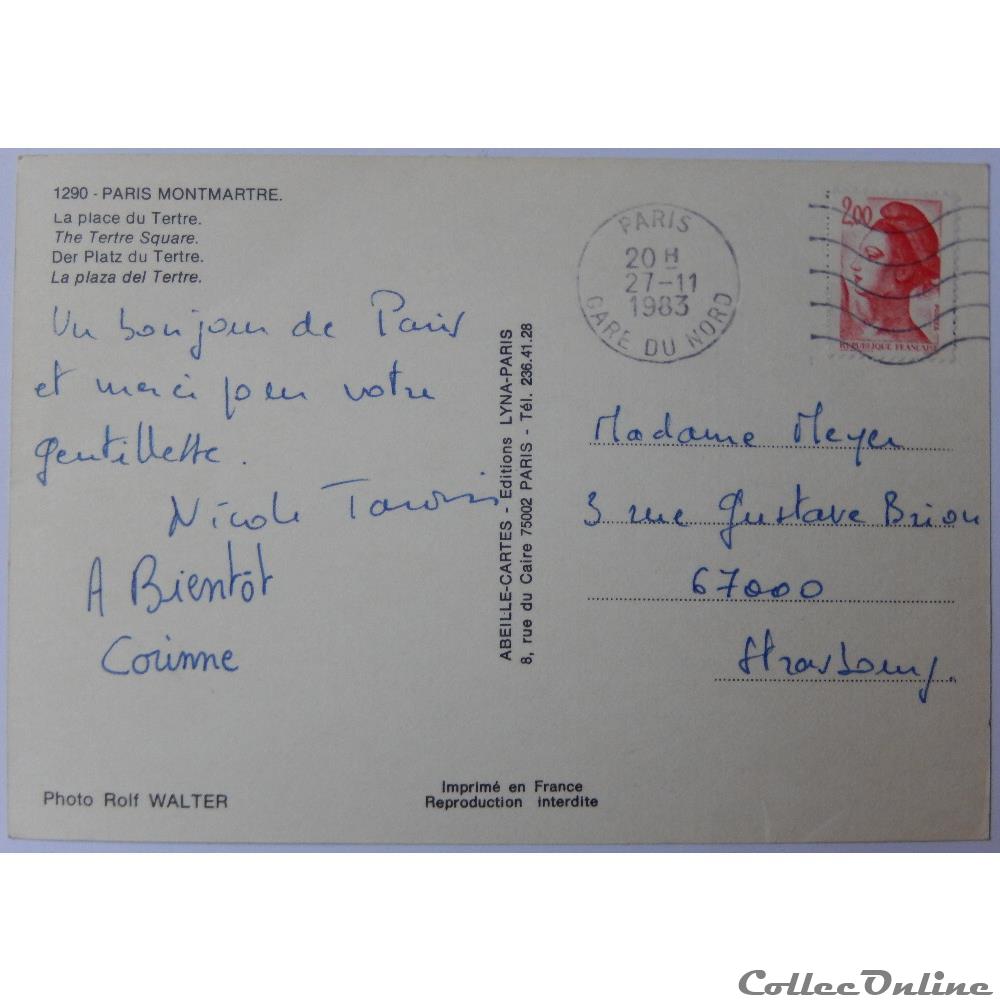 1290 - PARIS MONTMARTRE.
La place du Tertre.
The Tertre Square.
Der Platz du Tertre.
La plaza del Tertre.
Un bonjour de Paris
et merci pour votre
gentillesse.
Nicole
A Bientôt
Corinne
Photo Rolf WALTER
ABEILLE-CARTES - Editions LYNA-PARIS
8, rue du Caire 75002 PARIS - Tél. 236.41.28
Imprimé en France
Reproduction interdite
PARIS
20 H
27-11
1983
GARE DU NORD
2,00
REPUBLIQUE FRANCAISE
Madame Meyer
3 rue Gustave Brion
67000
Strasbourg.
CollecOnline